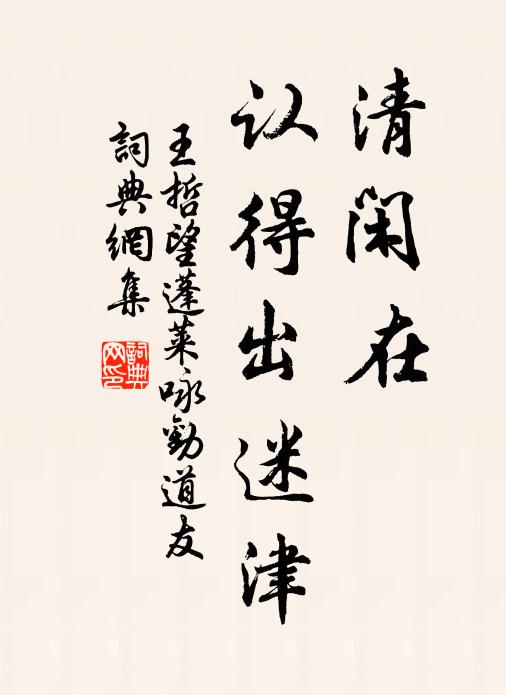 清闲在
认得出迷津
王哲望蓬莱咏劝道友
詞典網集
詞典
网印